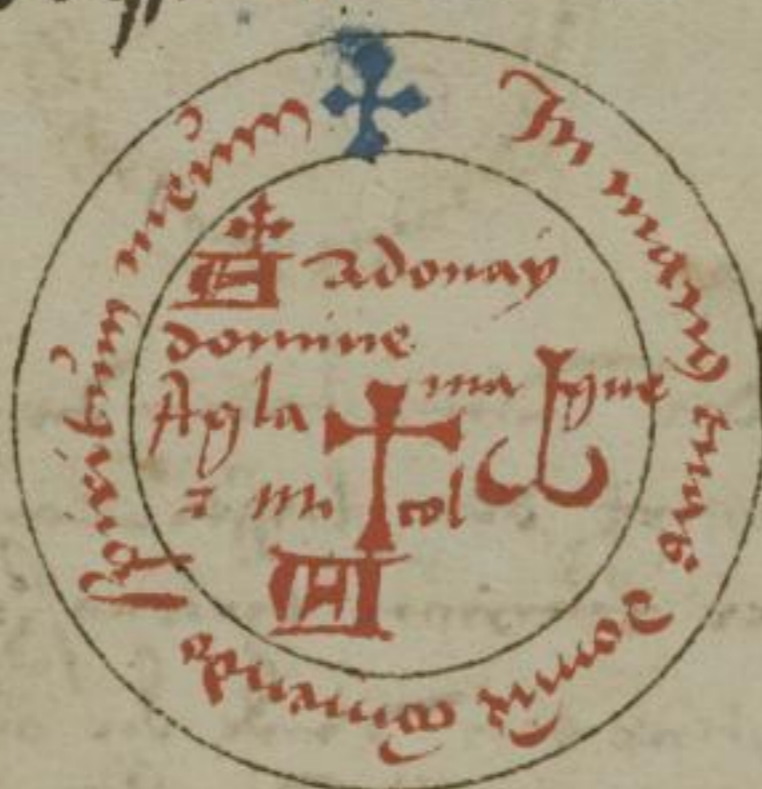 In manus tuas domine comendo spiritum meum
adonay
domine
Agla ma gne
mi col